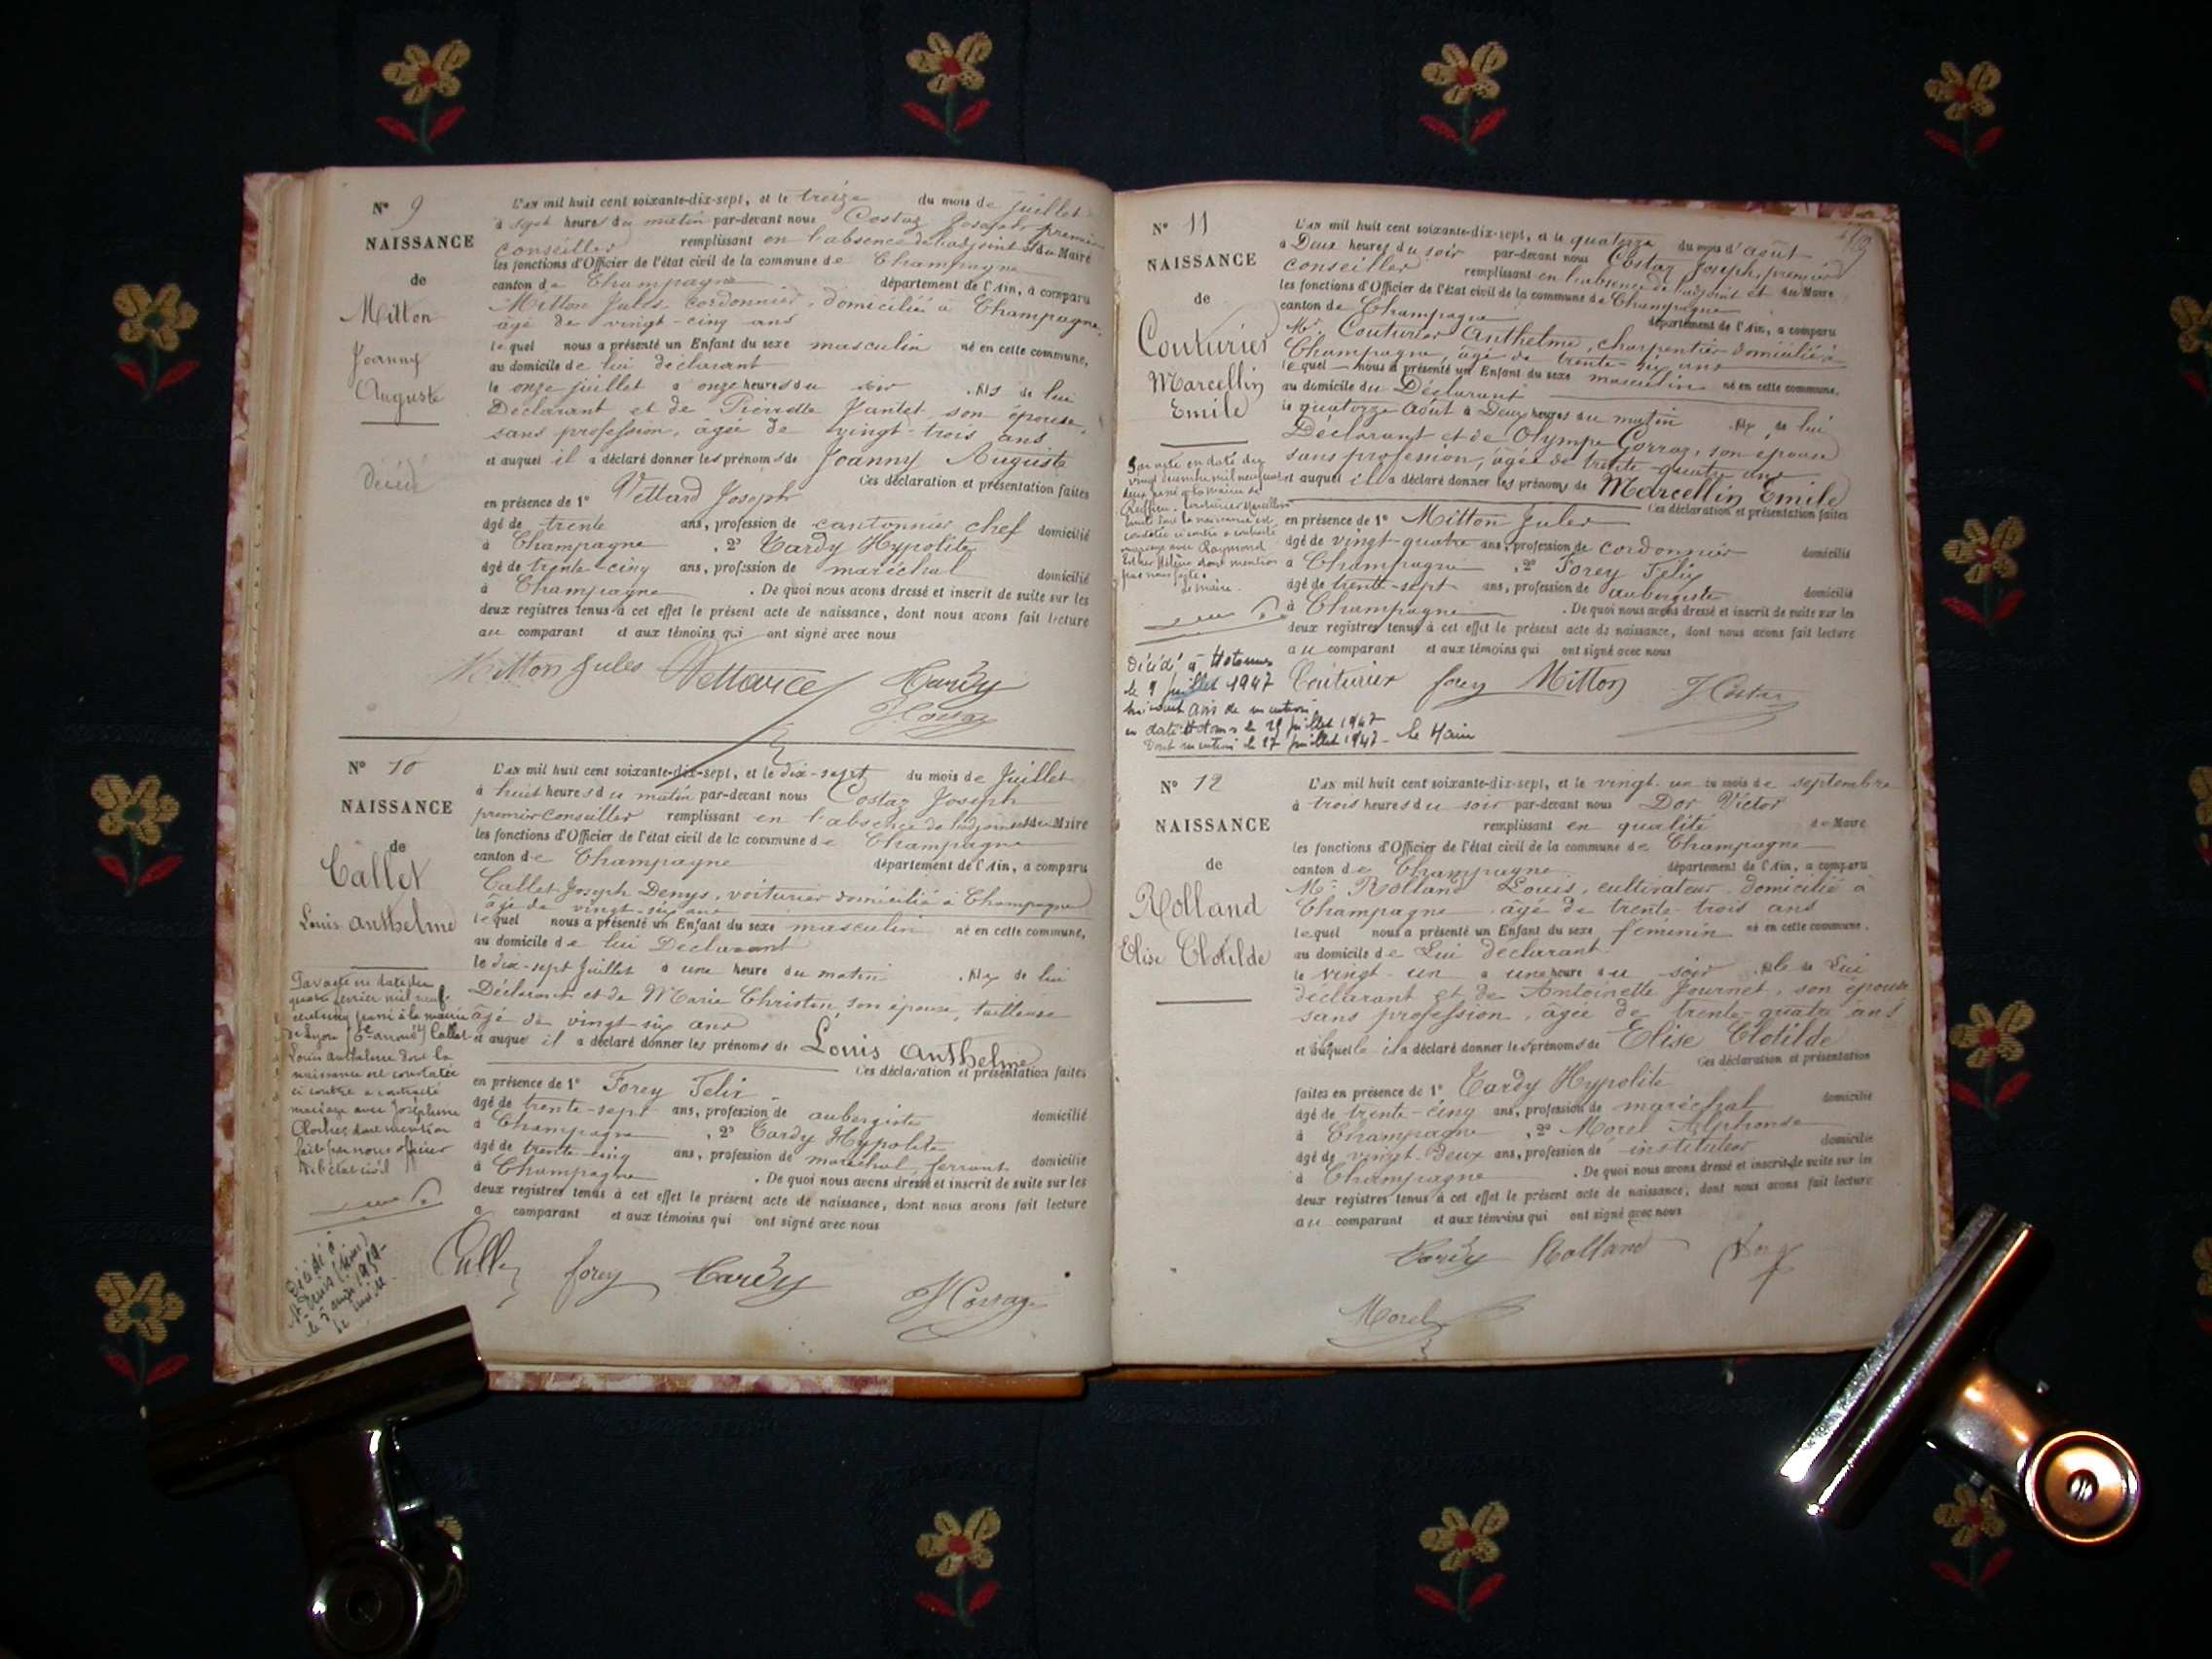 N° 9
NAISSANCE
de
Mitton
Joanny
Auguste
décédé
L'AN mil huit cent soixante-dix-sept, et le treize du mois de juillet
à sept heures du matin par-devant nous Costaz Joseph premier
conseiller remplissant en l'absence de l'adjoint et du Maire
les fonctions d'Officier de l'état civil de la commune de Champagne
canton de Champagne département de l'Ain, a comparu
Mitton Jules cordonnier, domicilié à Champagne
âgé de vingt-cinq ans
lequel nous a présenté un Enfant du sexe masculin né en cette commune,
au domicile de lui déclarant
le onze juillet à onze heures du soir fils de lui
Déclarant et de Pierrette Jantet son épouse,
sans profession, âgée de vingt-trois ans
et auquel il a déclaré donner les prénoms de Joanny Auguste
Ces déclaration et présentation faites
en présence de 1° Vettard Joseph
âgé de trente ans, profession de cantonnier chef domicilié
à Champagne , 2° Tardy Hypolite
âgé de trente-cinq ans, profession de maréchal domicilié
à Champagne . De quoi nous avons dressé et inscrit de suite sur les
deux registres tenus à cet effet le présent acte de naissance, dont nous avons fait lecture
au comparant et aux témoins qui ont signé avec nous
Mitton Jules Vettard Tardy
JCostaz
N° 10
NAISSANCE
de
Callet
Louis Anthelme
Par acte en date du
quatre février mil neuf
cent cinq passé à la mairie
de Lyon (6e arrond) Callet
Louis Anthelme dont la
naissance est constatée
ci contre a contracté
mariage avec Joséphine
dont mention
faite par nous officier
de l'état civil
Décédé à
St Denis (Seine)
le
L'AN mil huit cent soixante-dix-sept, et le dix-sept du mois de Juillet
à huit heures du matin par-devant nous Costaz Joseph
premier conseiller remplissant en l'absence de l'adjoint et du Maire
les fonctions d'Officier de l'état civil de la commune de Champagne
canton de Champagne département de l'Ain, a comparu
Callet Joseph Denys, voiturier domicilié à Champagne
âgé de vingt-six ans
lequel nous a présenté un Enfant du sexe masculin né en cette commune,
au domicile de lui Déclarant
le dix-sept Juillet à une heure du matin fils de lui
Déclarant et de Marie Christin, son épouse, tailleuse
âgé de vingt-six ans
et auquel il a déclaré donner les prénoms de Louis Anthelme
Ces déclaration et présentation faites
en présence de 1° Forey Felix
âgé de trente-sept ans, profession de aubergiste domicilié
à Champagne , 2° Tardy Hypolite
âgé de trente-cinq ans, profession de maréchal ferrant domicilié
à Champagne . De quoi nous avons dressé et inscrit de suite sur les
deux registres tenus à cet effet le présent acte de naissance, dont nous avons fait lecture
a comparant et aux témoins qui ont signé avec nous
Callet forey Tardy JCostaz
N° 11
NAISSANCE
de
Couturier
Marcellin
Emile
Par acte en date du
vingt décembre mil neuf cent
deux passé à la mairie de
Ruffieu, Couturier Marcellin
Emile dont la naissance est
constatée ci contre a contracté
mariage avec Raymond
Esther Hélène dont mention
par nous faite.
Le maire.
Décédé à Hotonnes
le 9 juillet 1947
suivant avis de mention
en date Hotonnes le 25 juillet 1947
Dont mention le 27 juillet 1947 - le Maire
L'AN mil huit cent soixante-dix-sept, et le quatorze du mois d'août
à Deux heures du soir par-devant nous Costaz Joseph, premier
conseiller remplissant en l'absence de l'adjoint et du Maire
les fonctions d'Officier de l'état civil de la commune de Champagne
canton de Champagne département de l'Ain, a comparu
Mr Couturier Anthelme, charpentier domicilié à
Champagne, âgé de trente-six ans
lequel nous a présenté un Enfant du sexe masculin né en cette commune,
au domicile du Déclarant
le quatorze Août à Deux heures du matin fils de lui
Déclarant et de Olympe Gorraz, son épouse
sans profession, âgée de trente-quatre ans
et auquel il a déclaré donner les prénoms de Marcellin Emile
Ces déclaration et présentation faites
en présence de 1° Mitton Jules
âgé de vingt-quatre ans, profession de cordonnier domicilié
à Champagne , 2° Forey Félix
âgé de trente-sept ans, profession de aubergiste domicilié
à Champagne . De quoi nous avons dressé et inscrit de suite sur les
deux registres tenus à cet effet le présent acte de naissance, dont nous avons fait lecture
au comparant et aux témoins qui ont signé avec nous
Couturier forey Mitton JCostaz
N° 12
NAISSANCE
de
Rolland
Elise Clotilde
L'AN mil huit cent soixante-dix-sept, et le vingt-un du mois de septembre
à trois heures du soir par-devant nous Dor Victor
remplissant en qualité de Maire
les fonctions d'Officier de l'état civil de la commune de Champagne
canton de Champagne département de l'Ain, a comparu
Mr Rolland Louis, cultivateur domicilié à
Champagne âgé de trente-trois ans
lequel nous a présenté un Enfant du sexe féminin né en cette commune,
au domicile de Lui déclarant
le vingt-un à une heure du soir fille de Lui
déclarant et de Antoinette Journet, son épouse
sans profession, âgée de trente-quatre ans
et à laquelle il a déclaré donner les prénoms de Elise Clotilde
Ces déclaration et présentation
faites en présence de 1° Tardy Hypolite
âgé de trente-cinq ans, profession de maréchal domicilié
à Champagne , 2° Morel Alphonse
âgé de vingt-deux ans, profession de instituteur domicilié
à Champagne . De quoi nous avons dressé et inscrit de suite sur les
deux registres tenus à cet effet le présent acte de naissance, dont nous avons fait lecture
au comparant et aux témoins qui ont signé avec nous
Tardy Rolland Dor
Morel